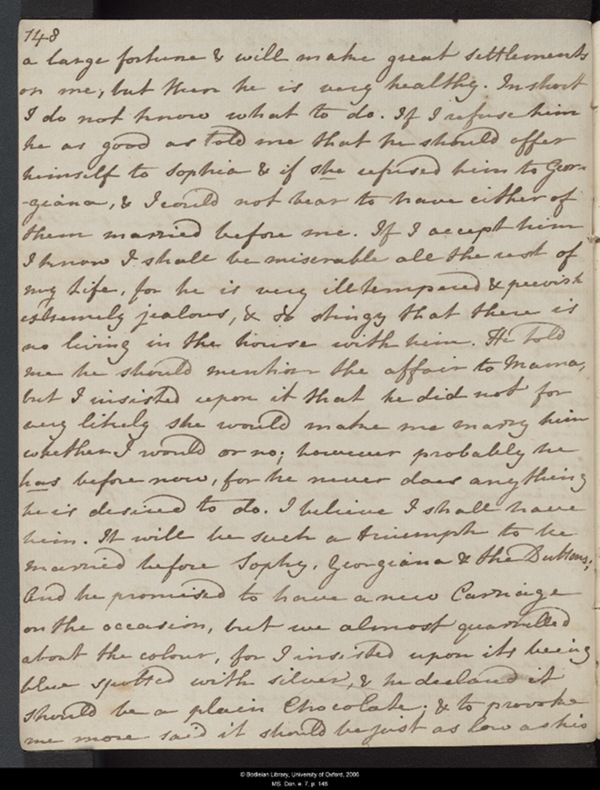 148
a large fortune & will make great settlements
on me, but then he is very healthy. In short
I do not know what to do. If I refuse him
he as good as told me that he should offer
himself to Sophia & if she refused him to Geor-
-giana, & I could not bear to have either of
them married before me. If I accept him
I know I shall be miserable all the rest of
my Life, for he is very illtempered & peevish
extremely jealous, & so stingy that there is
no living in the house with him. He told
me he should mention the affair to Mama,
but I insisted upon it that he did not for
very likely she would make me marry him
whether I would or no; however probably he
has before now, for he never does anything
he is desired to do. I believe I shall have
him. It will be such a triumph to be
married before Sophy, Georgiana & the Duttons;
And he promised to have a new Carriage
on the occasion, but we almost quarrelled
about the colour, for I insisted upon its being
blue spotted with silver, & he declared it
should be a plain Chocolate; & to provoke
me more said it should be just as low as his
© Bodleian Library, University of Oxford, 2006
MS. Don. e. 7, p. 148